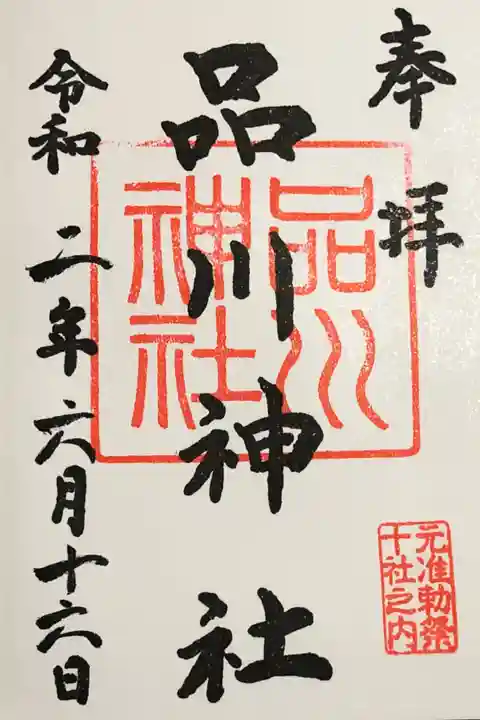 奉拝
品川神社
品川
神社
令和二年六月十六日
元准勅祭
十社之内